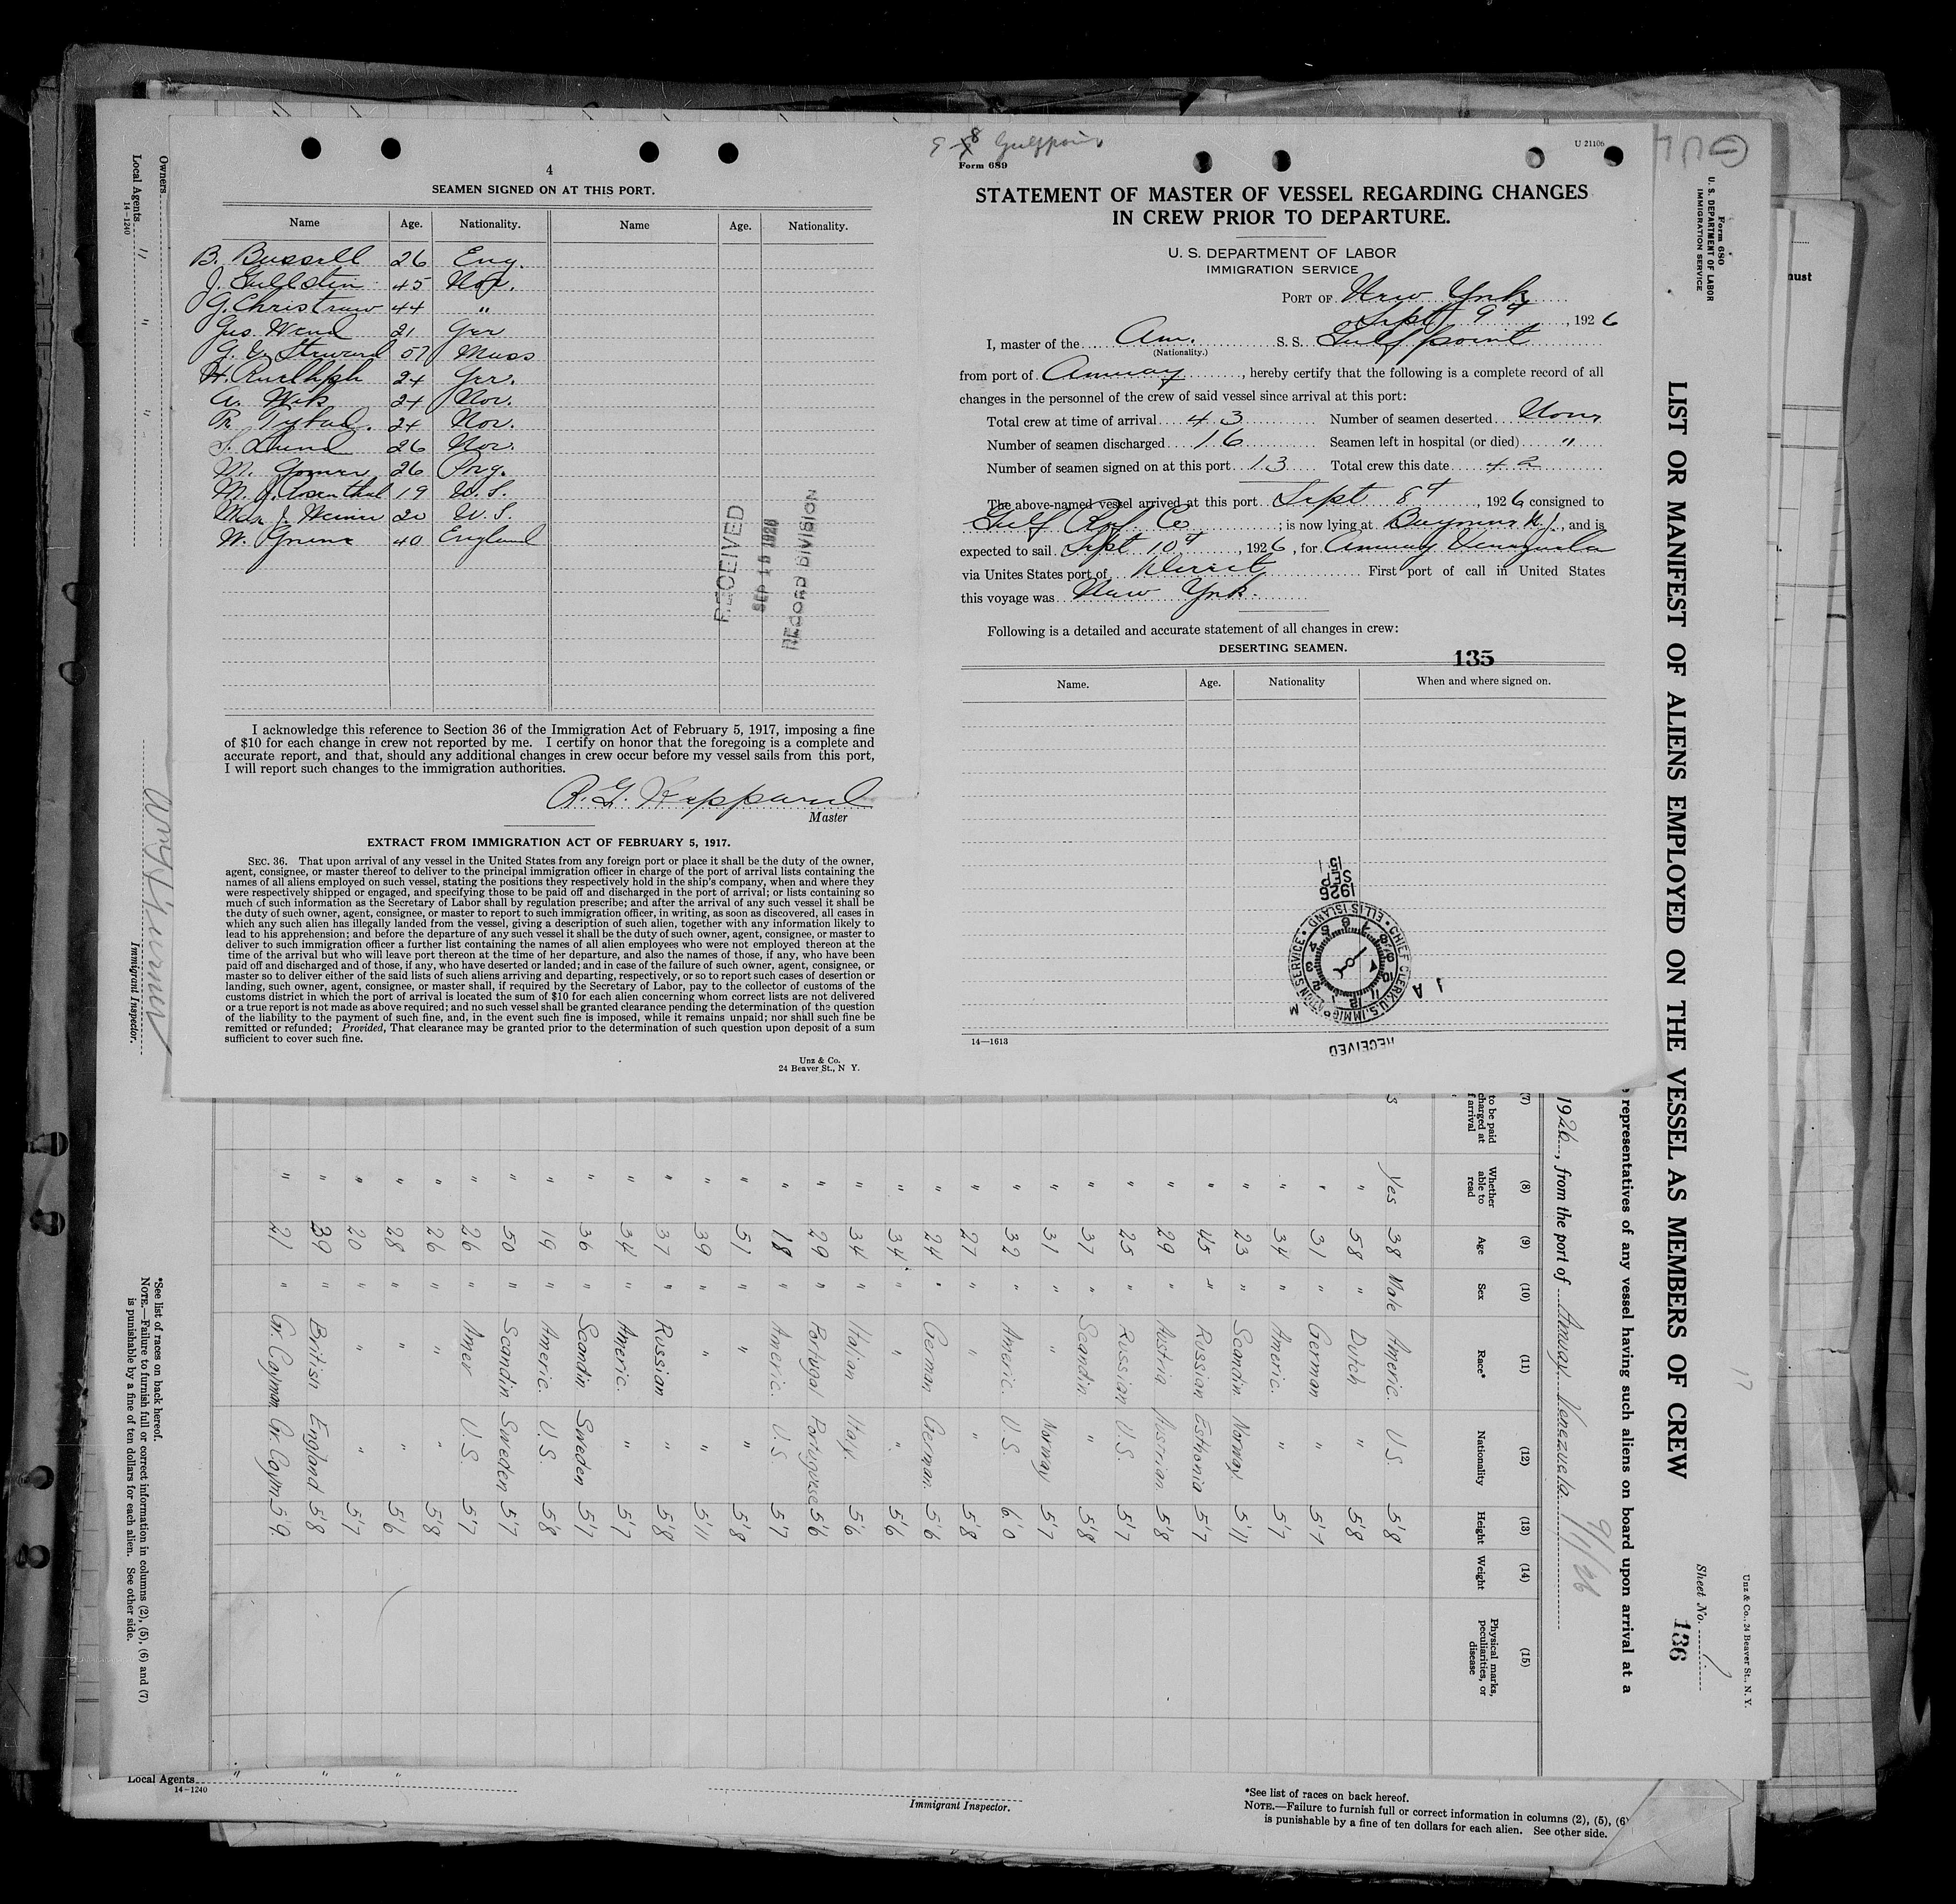 4
SEAMEN SIGNED ON AT THIS PORT.
Name Age. Nationality. Name Age. Nationality.
B. Bussell 26 Eng.
J. Gullstin 45 Nor.
G. Christnow 44 "
Gus. Wend 21 Ger
G. Steward 57 Muss
H. Rudlhph 24 Ger.
A. Wik 24 Nor.
24 Nor.
S. Lund 26 Nor.
M. Gomer 26 Prtg.
M. J. Rosenthal 19 U.S.
Max J. Weiner 20 U.S.
W. Greene 40 England
RECEIVED
SEP 15 1926
RECORD DIVISION
I acknowledge this reference to Section 36 of the Immigration Act of February 5, 1917, imposing a fine
of $10 for each change in crew not reported by me. I certify on honor that the foregoing is a complete and
accurate report, and that, should any additional changes in crew occur before my vessel sails from this port,
I will report such changes to the immigration authorities.
Master
EXTRACT FROM IMMIGRATION ACT OF FEBRUARY 5, 1917.
SEC. 36. That upon arrival of any vessel in the United States from any foreign port or place it shall be the duty of the owner,
agent, consignee, or master thereof to deliver to the principal immigration officer in charge of the port of arrival lists containing the
names of all aliens employed on such vessel, stating the positions they respectively hold in the ship's company, when and where they
were respectively shipped or engaged, and specifying those to be paid off and discharged in the port of arrival; or lists containing so
much of such information as the Secretary of Labor shall by regulation prescribe; and after the arrival of any such vessel it shall be
the duty of such owner, agent, consignee, or master to report to such immigration officer, in writing, as soon as discovered, all cases in
which any such alien has illegally landed from the vessel, giving a description of such alien, together with any information likely to
lead to his apprehension; and before the departure of any such vessel it shall be the duty of such owner, agent, consignee, or master to
deliver to such immigration officer a further list containing the names of all alien employees who were not employed thereon at the
time of the arrival but who will leave port thereon at the time of her departure, and also the names of those, if any, who have been
paid off and discharged and of those, if any, who have deserted or landed; and in case of the failure of such owner, agent, consignee, or
master so to deliver either of the said lists of such aliens arriving and departing, respectively, or so to report such cases of desertion or
landing, such owner, agent, consignee, or master shall, if required by the Secretary of Labor, pay to the collector of customs of the
customs district in which the port of arrival is located the sum of $10 for each alien concerning whom correct lists are not delivered
or a true report is not made as above required; and no such vessel shall be granted clearance pending the determination of the question
of the liability to the payment of such fine, and, in the event such fine is imposed, while it remains unpaid; nor shall such fine be
remitted or refunded; Provided, That clearance may be granted prior to the determination of such question upon deposit of a sum
sufficient to cover such fine.
Unz & Co.
24 Beaver St., N Y.
9 8 Gulfpoint
Form 689
U 21106
STATEMENT OF MASTER OF VESSEL REGARDING CHANGES
IN CREW PRIOR TO DEPARTURE.
U. S. DEPARTMENT OF LABOR
IMMIGRATION SERVICE
PORT OF New York
Sept 9th, 1926
I, master of the Am. S. S. Gulfpoint
(Nationality.)
from port of Amuay, hereby certify that the following is a complete record of all
changes in the personnel of the crew of said vessel since arrival at this port:
Total crew at time of arrival 43 Number of seamen deserted None
Number of seamen discharged 16 Seamen left in hospital (or died) "
Number of seamen signed on at this port 13 Total crew this date 42
The above-named vessel arrived at this port Sept 8th, 1926 consigned to
Gulf Ref. Co; is now lying at Bayonne N.J., and is
expected to sail Sept 10th, 1926, for Amuay Venezuela
via Unites States port of Direct First port of call in United States
this voyage was New York.
Following is a detailed and accurate statement of all changes in crew:
DESERTING SEAMEN.
135
Name. Age. Nationality When and where signed on.
1926
SEP
15
CHIEF CLERK, U.S. IMMIGRATION SERVICE • ELLIS ISLAND •
RECEIVED
14—1613
Form 680
U. S. DEPARTMENT OF LABOR
IMMIGRATION SERVICE
LIST OR MANIFEST OF ALIENS EMPLOYED ON THE VESSEL AS MEMBERS OF CREW
Unz & Co., 24 Beaver St., N. Y.
Sheet No. 1
136
17
representatives of any vessel having such aliens on board upon arrival at a
1926, from the port of Amuay Venezuela
(7) (8) (9) (10) (11) (12) (13) (14) (15)
to be paid
charged at
f arrival
Whether able to read Age Sex Race* Nationality Height Weight Physical marks, peculiarities, or disease
Yes 38 Male Americ. U.S. 5'8
" 58 " Dutch " 5'8
" 31 " German " 5'7
" 34 " Americ. " 5'7
" 23 " Scandin Norway 5'11
" 45 " Russian Esthonia 5'7
" 29 " Austria Austrian 5'8
" 25 " Russian U.S. 5'7
" 37 " Scandin. " 5'8
" 31 " " Norway 5'7
" 32 " Americ. U.S. 6'0
" 27 " " " 5'8
" 24 " German German 5'6
" 34 " " " 5'6
" 34 " Italian Italy 5'6
" 29 " Portugal Portuguese 5'6
" 18 " Americ. U.S 5'7
" 51 " " " 5'8
" 39 " " " 5'11
" 37 " Russian " 5'8
" 34 " Americ. " 5'7
" 36 " Scandin Sweden 5'7
" 19 " Americ. U.S. 5'8
" 50 " Scandin Sweden 5'7
" 26 " Amer U.S. 5'7
" 26 " " " 5'8
" 28 " " " 5'6
" 20 " " " 5'7
" 39 " British England 5'8
" 21 " Gr. Cayman Gr. Caym 5'9
Owners
Local Agents " " "
14-1240
Immigrant Inspector.
*See list of races on back hereof.
NOTE.—Failure to furnish full or correct information in columns (2), (5), (6) and (7)
is punishable by a fine of ten dollars for each alien. See other side.
Local Agents " " "
14-1240
Immigrant Inspector.
*See list of races on back hereof.
NOTE.—Failure to furnish full or correct information in columns (2), (5), (6)
is punishable by a fine of ten dollars for each alien. See other side.
must